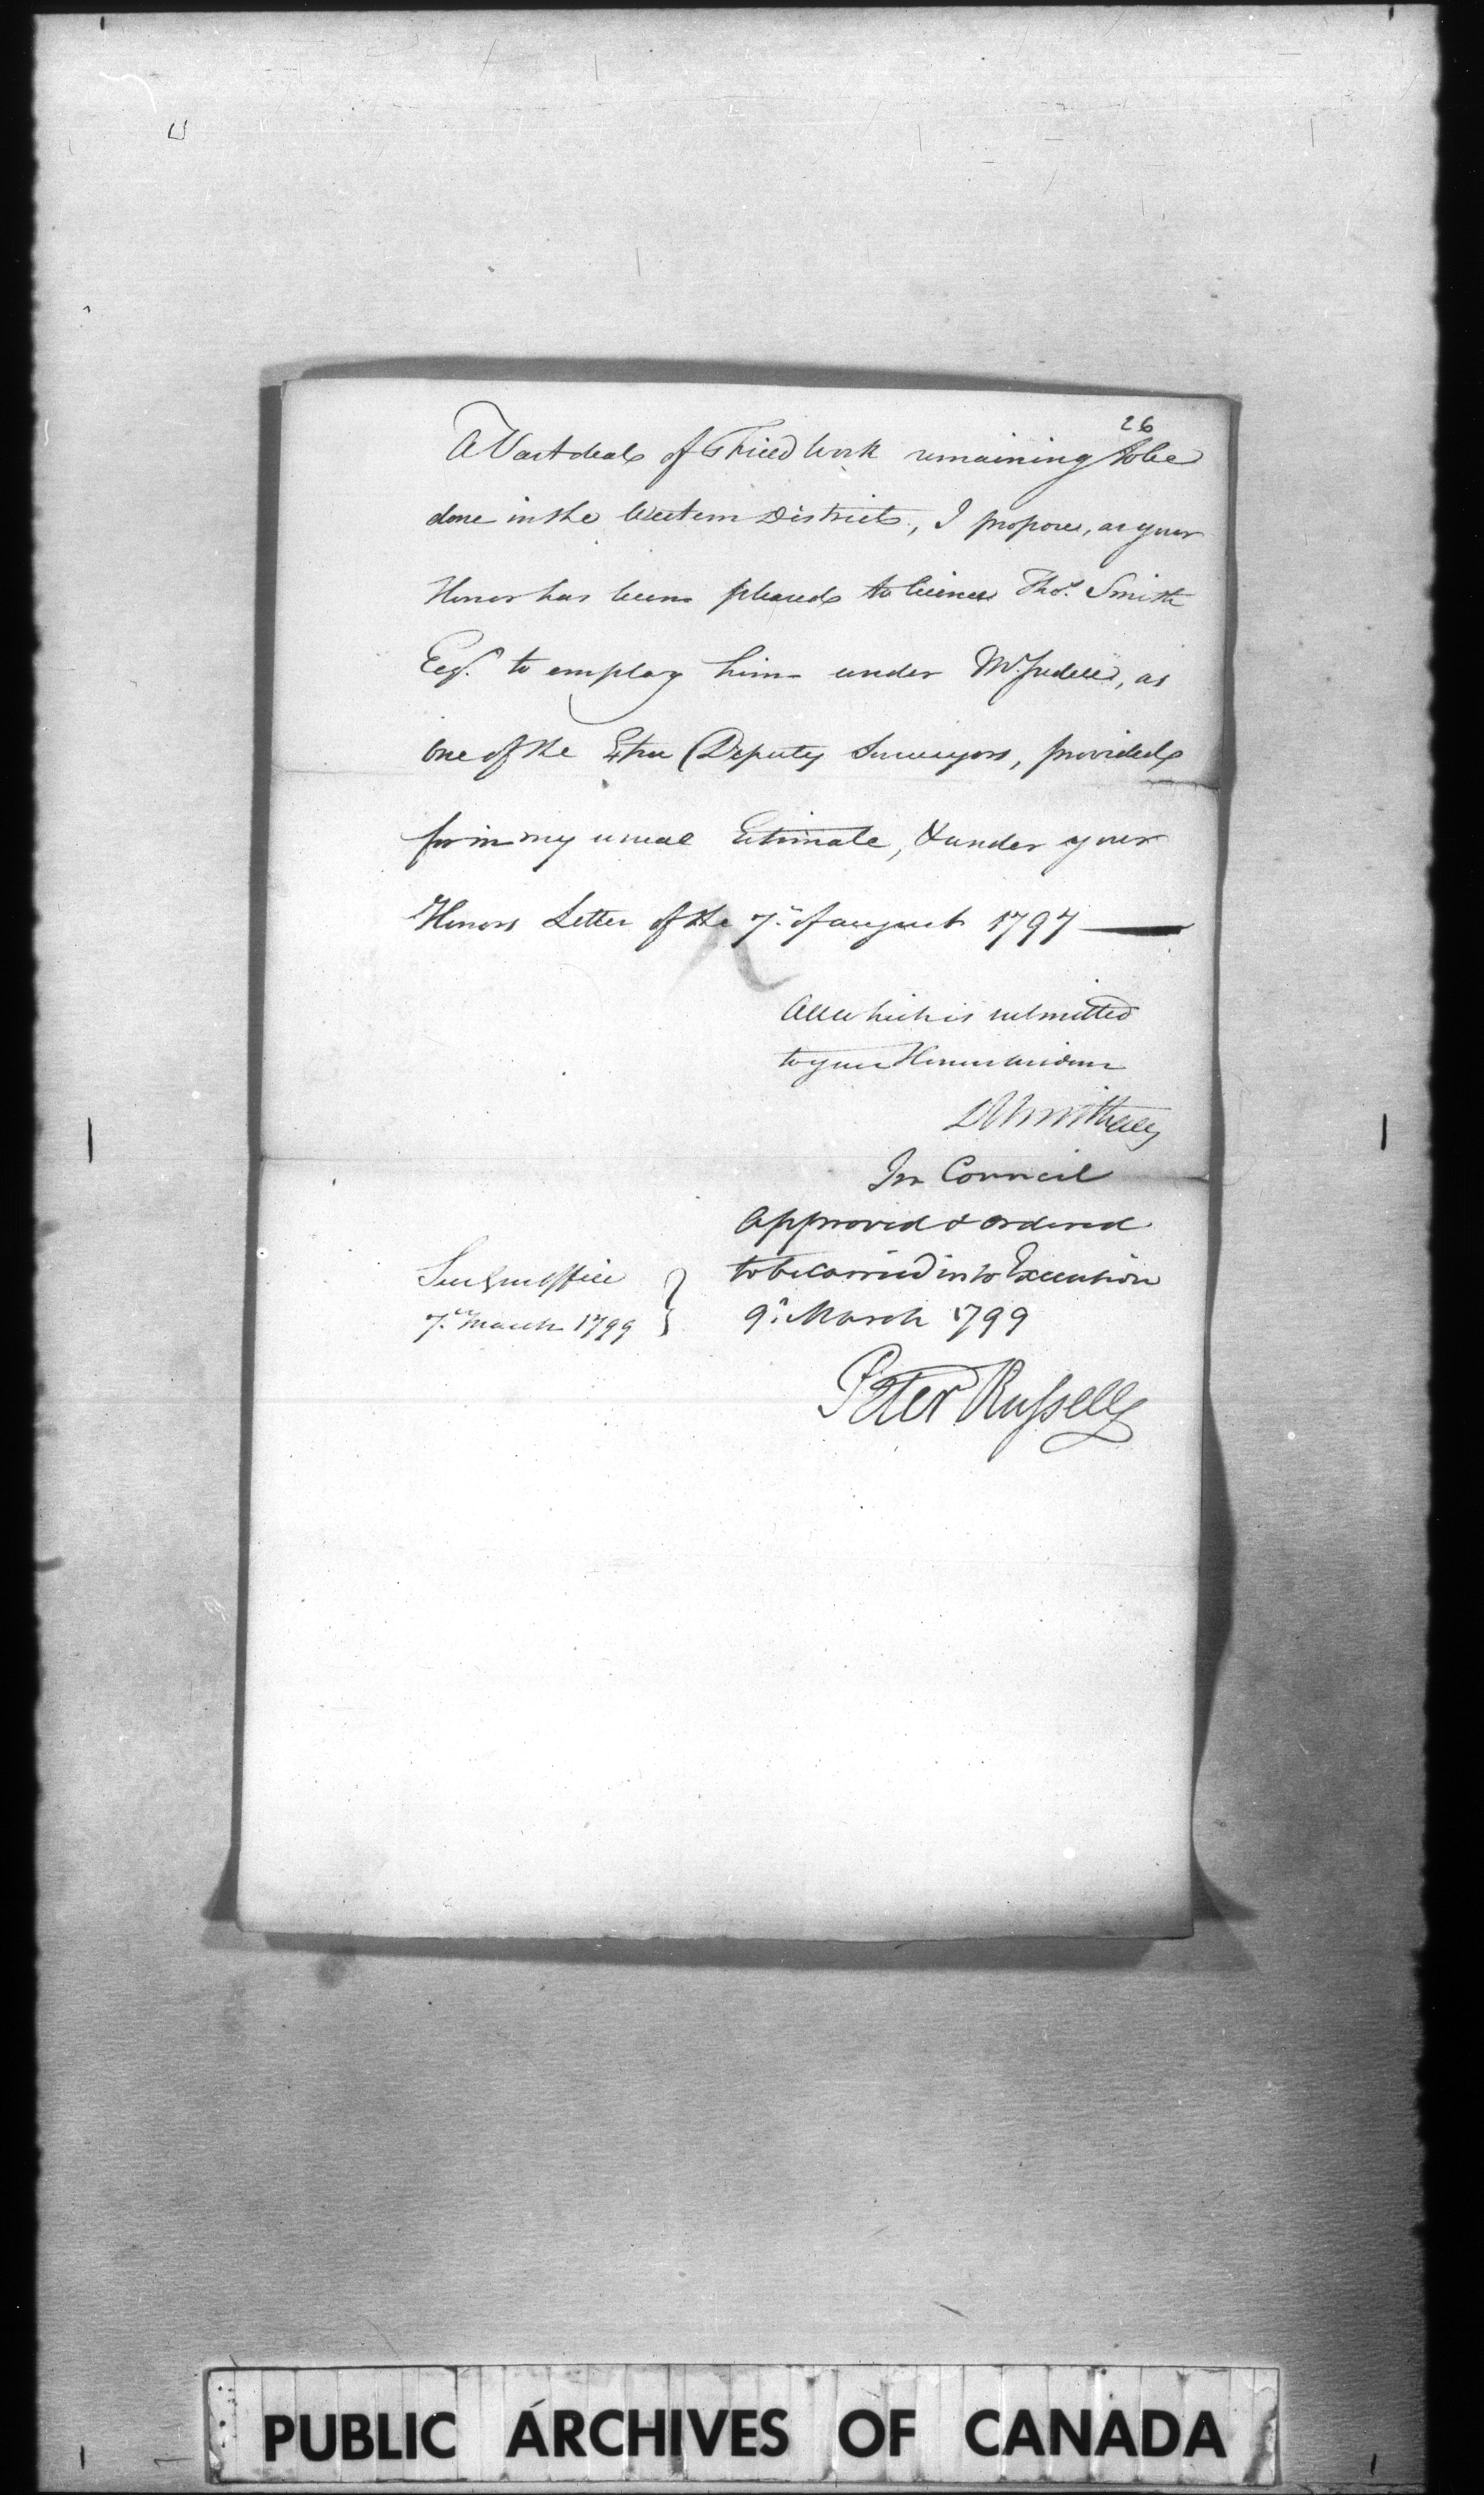 26
A Vast deal of Field Work remaining to be
done in the Western District, I propose, as your
Honor has been pleased to license Thos. Smith
Esqr. to employ him under Mr. Iredell, as
One of the Deputy Surveyors, provided
for in my usual Estimate, & under your
Honors Letter of the 7th of august 1797
All which is submitted
to your Honors wisdom
DW Smith
In Council
Approved & ordered
to be carried into Execution
9th. March 1799
Peter Russell
Sur Gen office
7th. March 1799
PUBLIC ARCHIVES OF CANADA